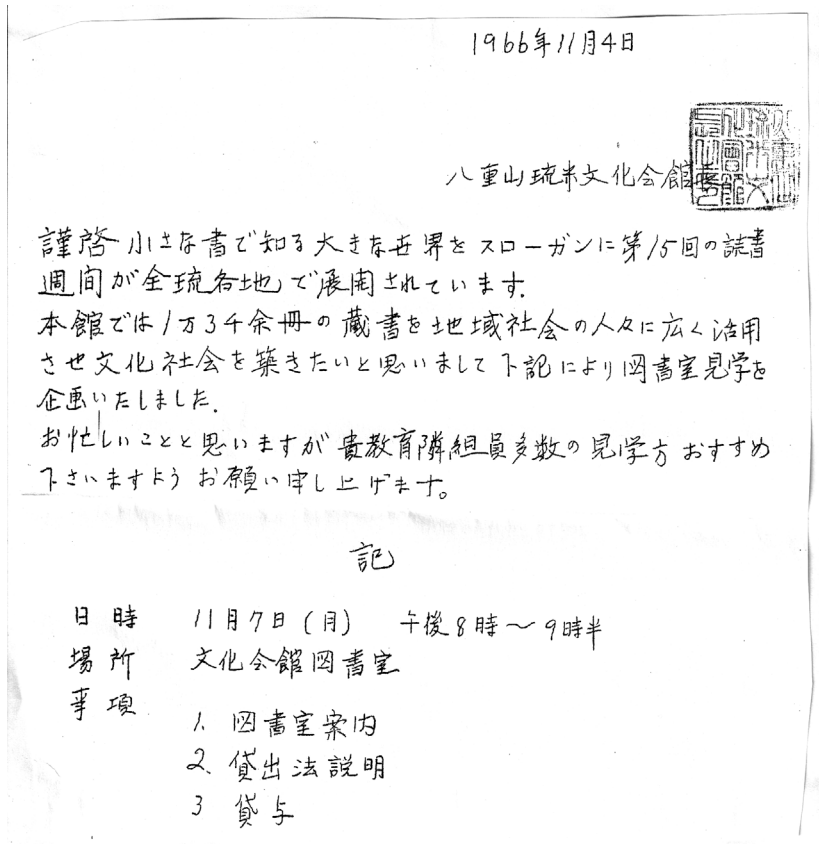 1966年11月4日
八重山琉米文化会館長
謹啓 小さな書で知る大きな世界をスローガンに第15回の読書
週間が全琉各地で展開されています.
本館では1万3千余冊の蔵書を地域社会の人々に広く活用
させ文化社会を築きたいと思いまして下記により図書室見学を
企画いたしました.
お忙しいことと思いますが貴教育隣組員多数の見学方おすすめ
下さいますようお願い申し上げます。
記
日時 11月7日(月) 午後8時~9時半
場所 文化会館図書室
事項
1. 図書室案内
2. 貸出法説明
3 貸与